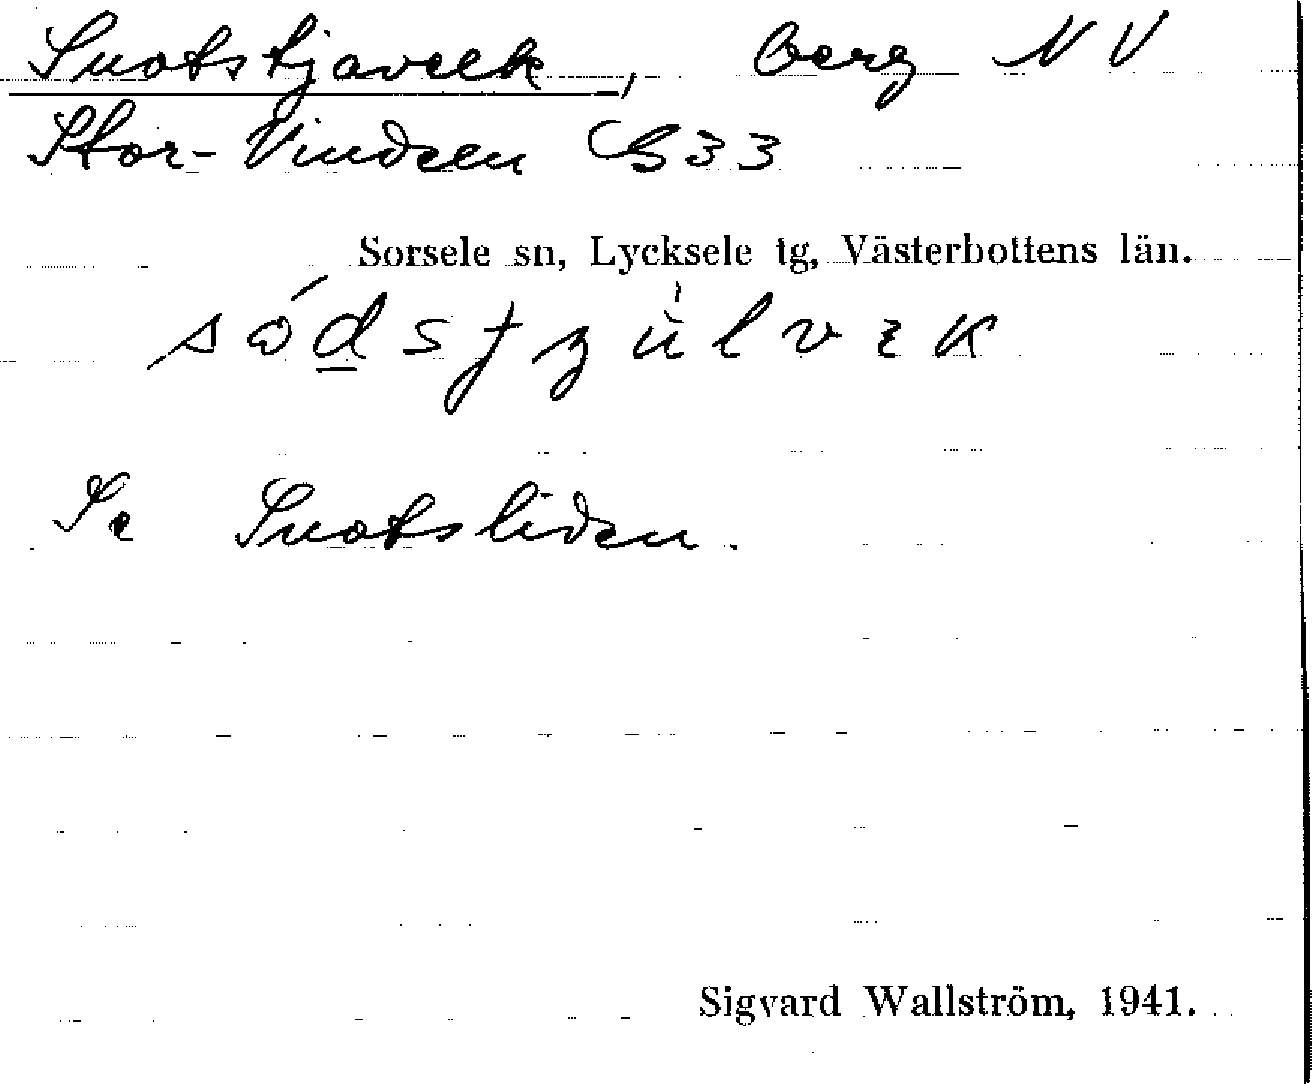 Suotstjaveek, berg NV
Stor-Vindeln G33
Sorsele sn, Lycksele tg, Västerbottens län.
Se Suotsliden.
Sigvard Wallström, 1941.